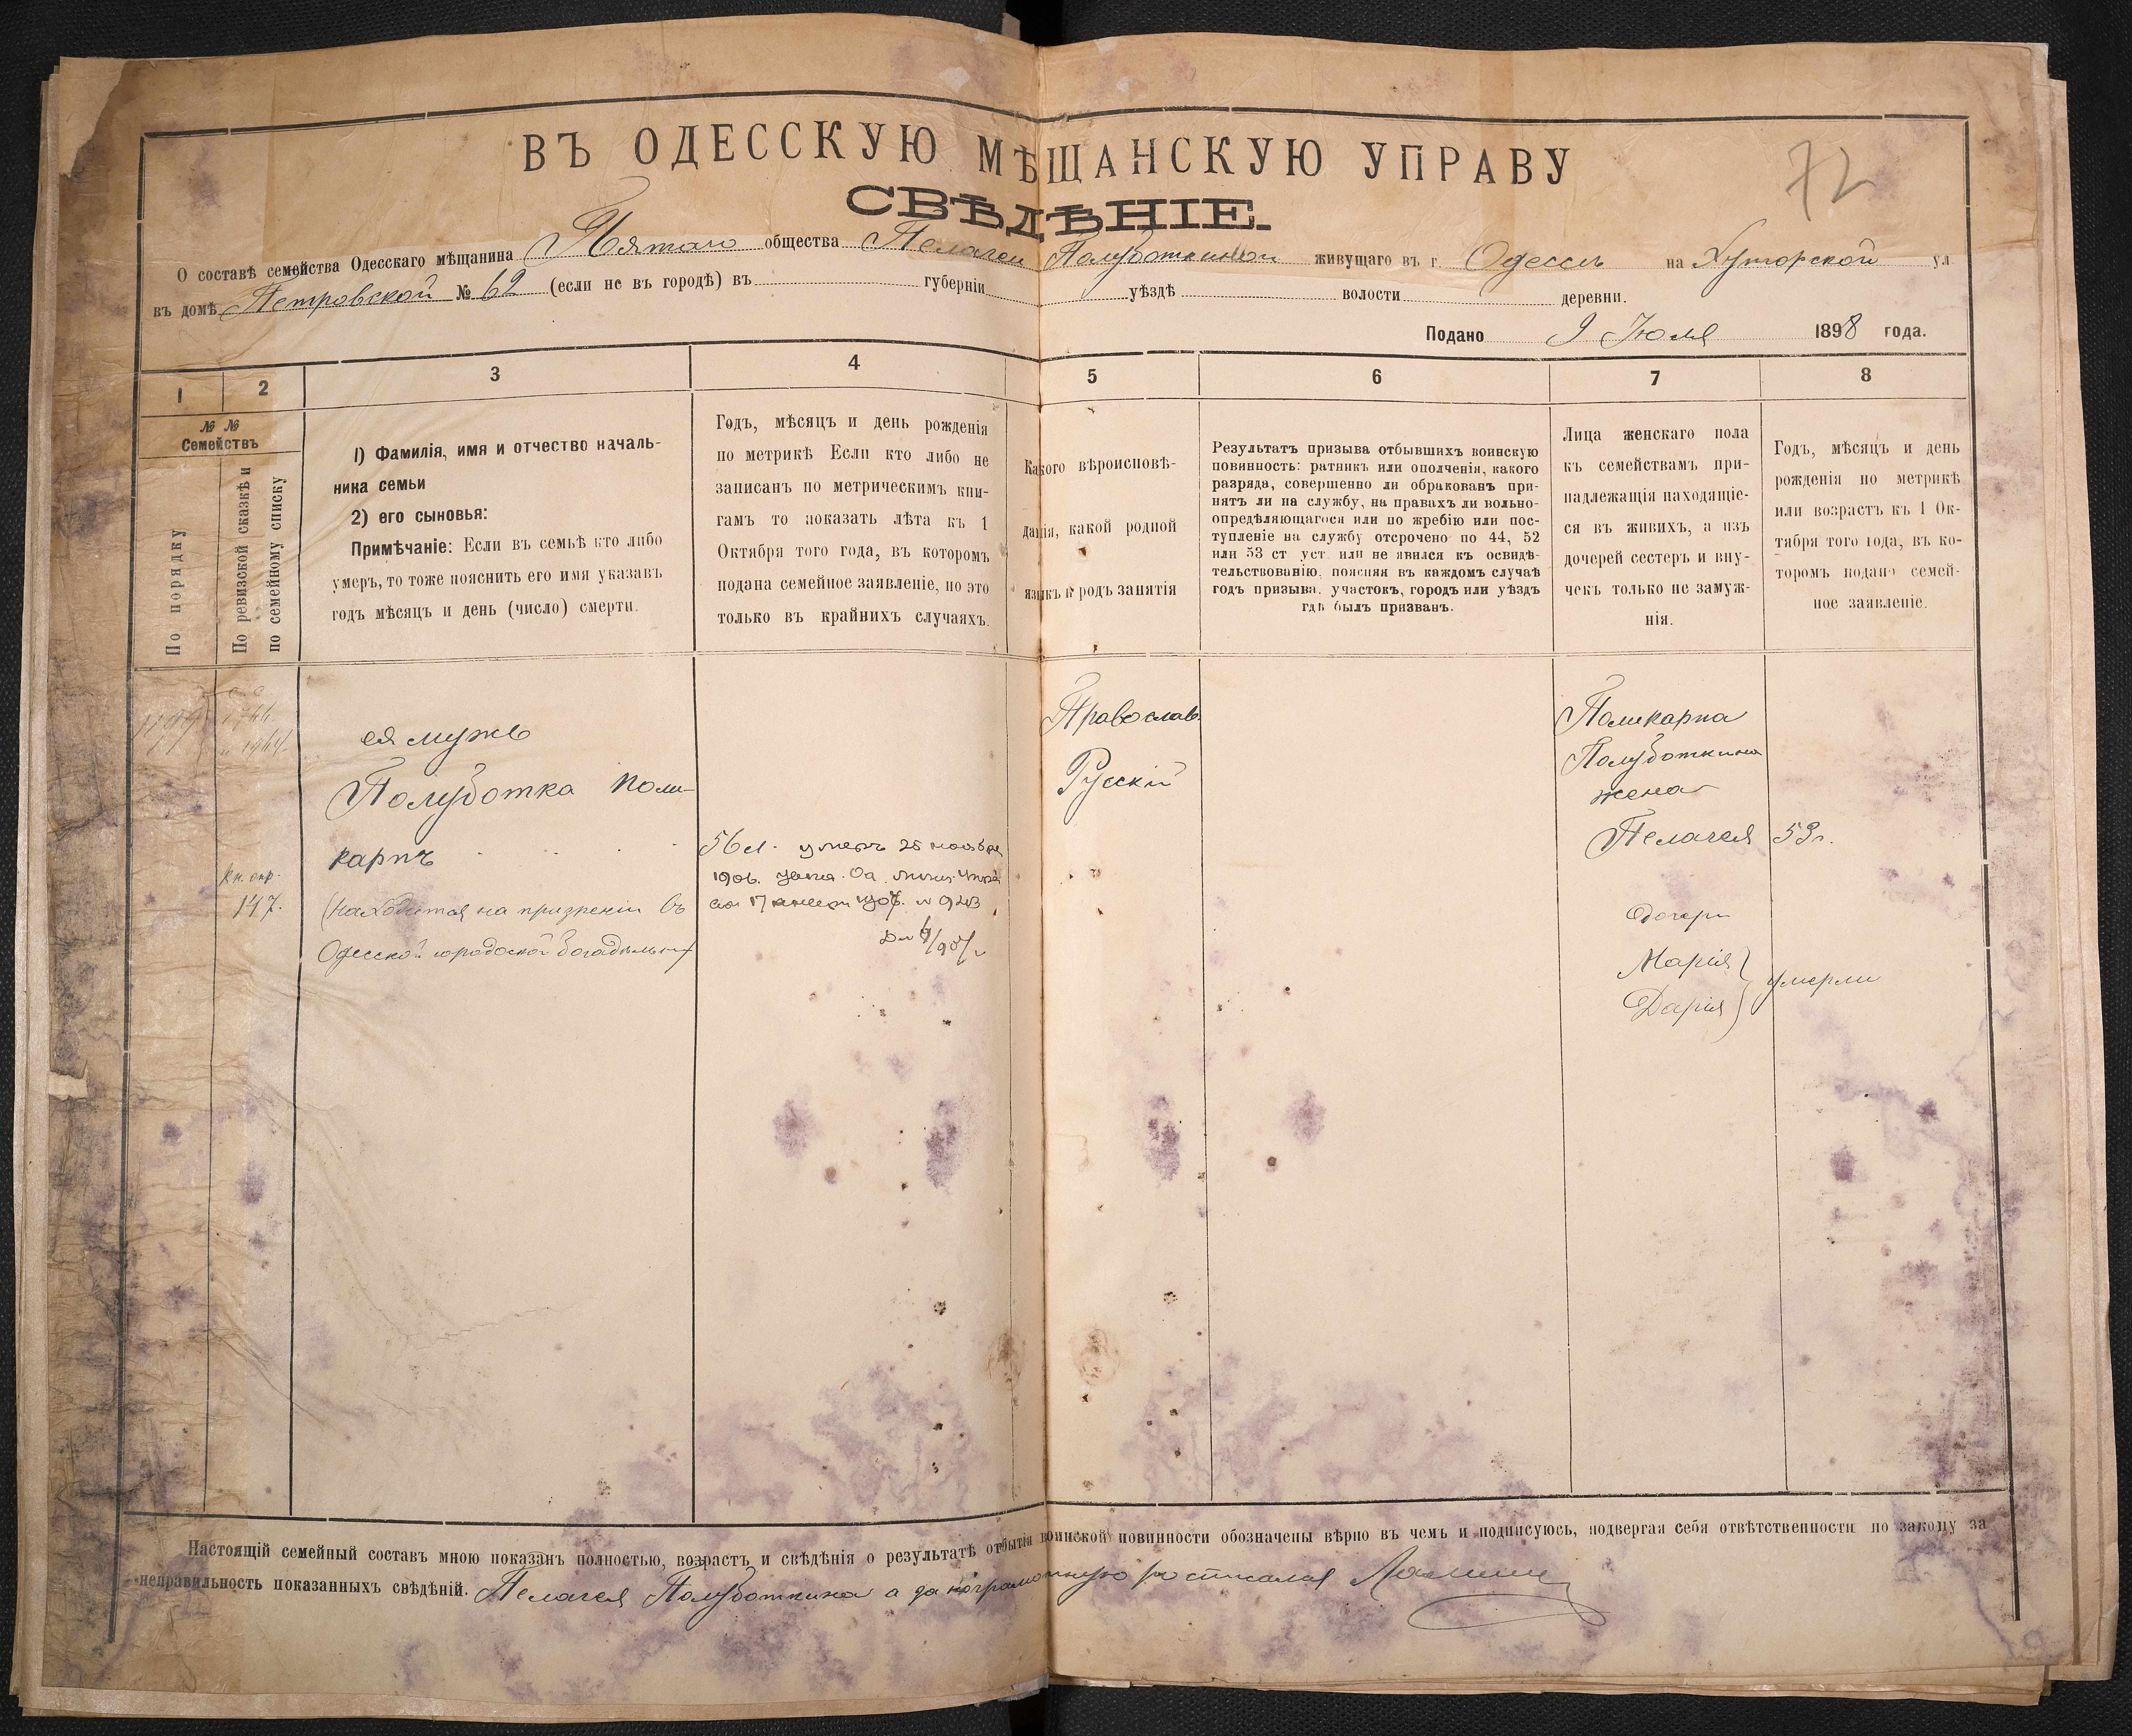 ВЪ ОДЕССКУЮ МѢЩАНСКУЮ УПРАВУ
72
СВѢДѢНІЕ.
О составѣ семейства Одесскаго мѣщанина Пятаго общества Пелагеи Полуботкиной живущаго въ г. Одессѣ на Хуторской ул
въ домѣ Петровской № 62 (если не въ городѣ) въ губерніи уѣздѣ волости деревни.
Подано 9 Іюля 1898 года.
1 2 3 4 5 6 7 8
№ №
Семействъ
По порядку
По ревизской сказкѣ и
по семейному списку
1) Фамилія, имя и отчество началь-
ника семьи
2) его сыновья:
Примѣчаніе: Если въ семьѣ кто либо
умеръ, то тоже пояснить его имя указавъ
годъ мѣсяцъ и день (число) смерти.
Годъ, мѣсяцъ и день рожденія
по метрикѣ Если кто либо не
записанъ по метрическимъ кни-
гамъ то показать лѣта къ 1
Октября того года, въ которомъ
подана семейное заявленіе, но это
только въ крайнихъ случаяхъ.
Какого вѣроисповѣ-
данія, какой родной
языкъ и родъ занятія
Результатъ призыва отбывшихъ воинскую
повинность: ратникъ или ополченія, какого
разряда, совершенно ли обракованъ при-
нятъ ли на службу, на правахъ ли вольно-
опредѣляющагося или по жребію или пос-
тупленіе на службу отсрочено по 44, 52
или 53 ст уст. или не явился къ освидѣ-
тельствованію, поясняя въ каждомъ случаѣ
годъ призыва, участокъ, городъ или уѣздъ
гдѣ былъ призванъ.
Лица женскаго пола
къ семействамъ при-
надлежащія находящіе-
ся въ живихъ, а изъ
дочерей сестеръ и вну-
чекъ только не замуж-
нія.
Годъ, мѣсяцъ и день
рожденія по метрикѣ
или возрастъ къ 1 Ок-
тября того года, въ ко-
торомъ подано семей-
ное заявленіе.
ея мужъ
Полуботка Поли-
карпъ
(находится на призреніи въ
Одесской городской богадѣльнѣ
147.
56 л. умеръ 25 ноября
1906.
Православ.
Русскій
Поликарпа
Полуботкина
жена
Пелагея 53 г.
дочери
Марія
Дарія
умерли
Настоящій семейный составъ мною показанъ полностью, возрастъ и свѣдѣнія о результатѣ отбытія воинской повинности обозначены вѣрно въ чемъ и подписуюсь, подвергая себя отвѣтственности по закону за
неправильность показанныхъ свѣдѣній. Пелагея Полуботкина а за неграмотную росписался